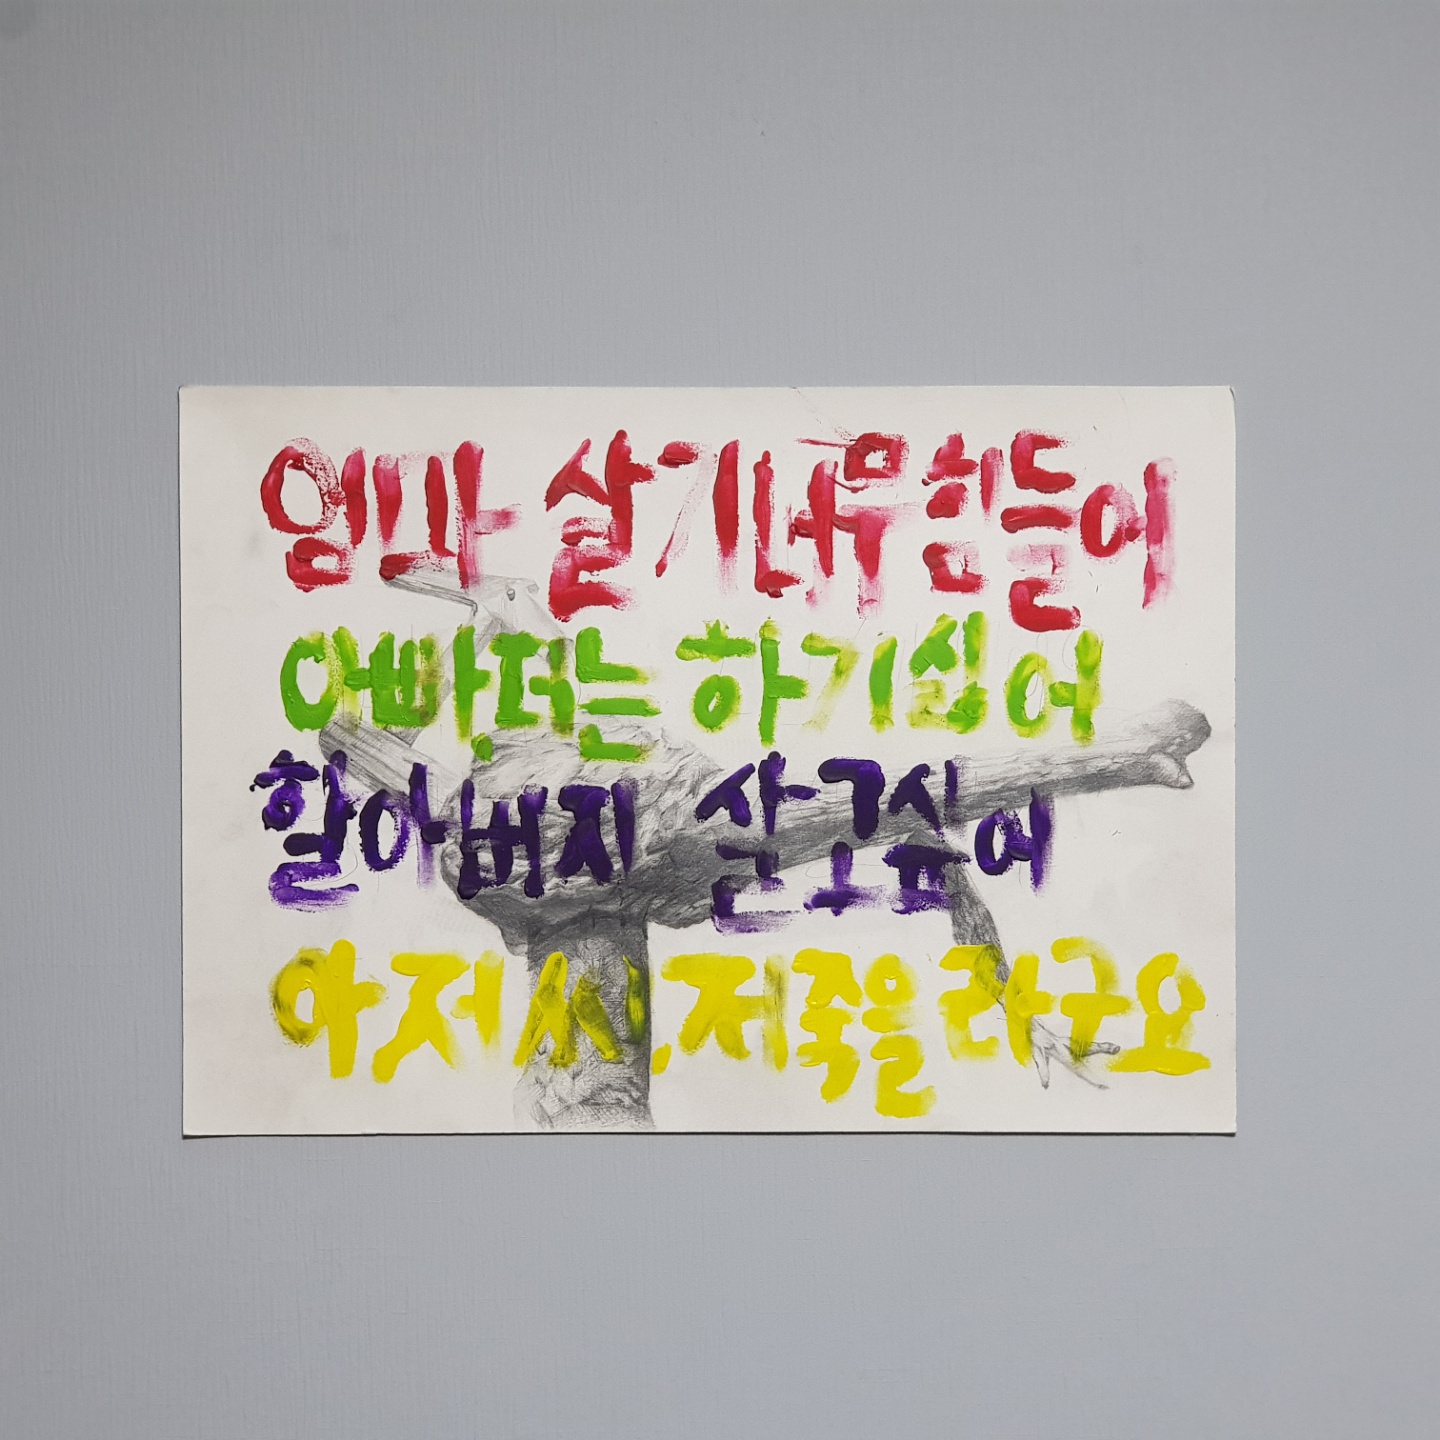 엄마 살기 너무 힘들어
아빠, 더는 하기싫어
할아버지 살고싶어
아저씨, 저 죽을라구요